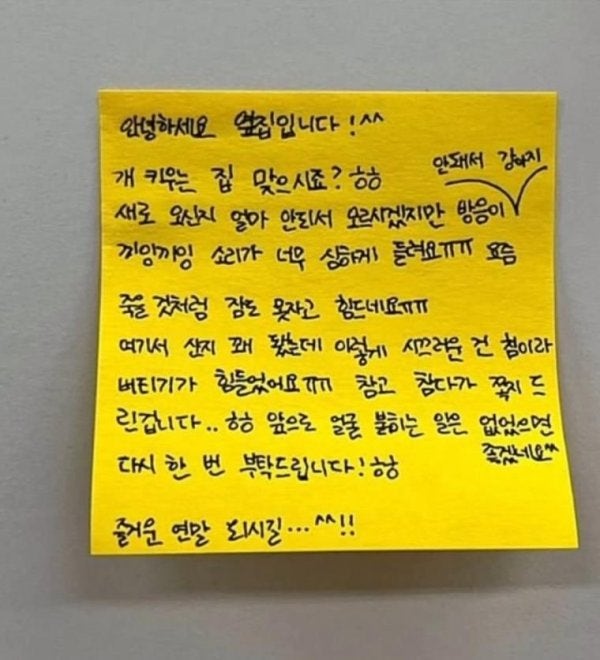 안녕하세요 옆집입니다!^^
개 키우는 집 맞으시죠?ㅎㅎ
안돼서 강아지
새로 오신지 얼마 안되서 모르시겠지만 방음이
끼잉끼잉 소리가 너무 심하게 들려요ㅠㅠ 요즘
죽을 것처럼 잠도 못자고 힘드네요ㅠㅠ
여기서 산지 꽤 됐는데 이렇게 시끄러운 건 첨이라
버티기가 힘들었어요ㅠㅠ 참고 참다가 쪽지 드
린겁니다..ㅎㅎ 앞으로 얼굴 붉히는 일은 없었으면
좋겠네요^^
다시 한 번 부탁드립니다!ㅎㅎ
즐거운 연말 되시길...^^!!